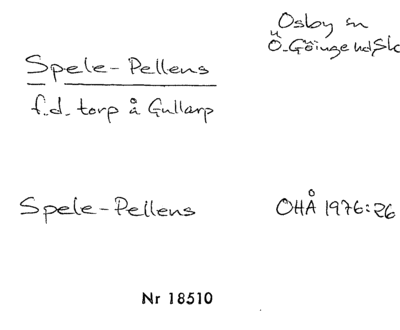 Osby sn
Ö. Göinge hd, Sk
Spele-Pellens
f.d. torp å Gullarp
Spele-Pellens
OHÅ 1976:26
Nr 18510